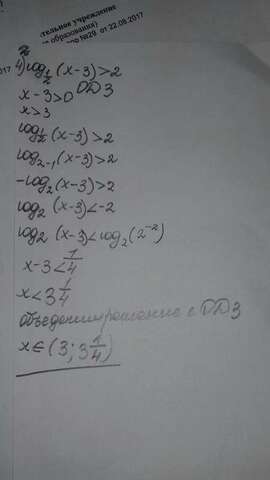 тельное учреждение
образования)
№29 от 22.08.2017
2017
4) log½ (x-3) > 2
x - 3 > 0 ОДЗ
x > 3
log½ (x-3) > 2
log₂₋₁ (x-3) > 2
-log₂ (x-3) > 2
log₂ (x-3) < -2
log₂ (x-3) < log₂ (2⁻²)
x - 3 < 1/4
x < 3 1/4
объединим решение с ОДЗ
x ∈ (3; 3 1/4)